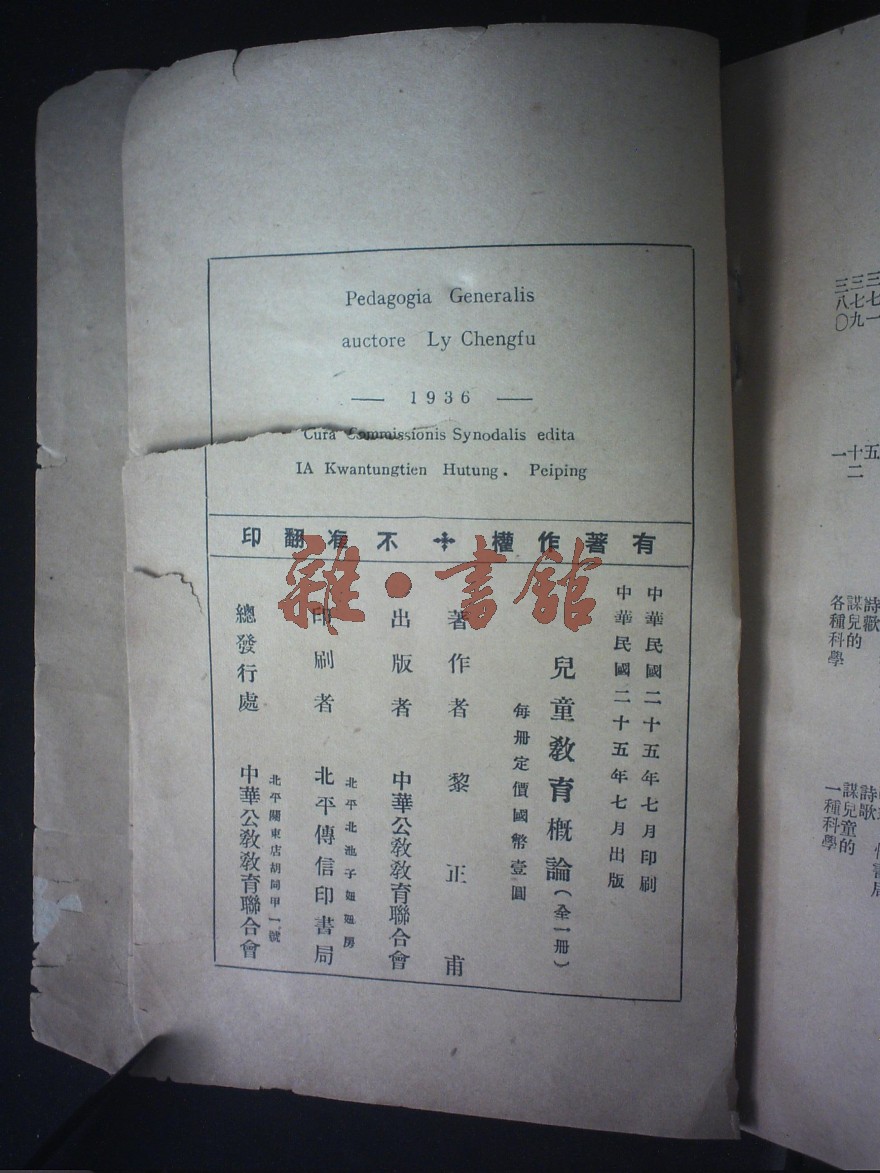 Pedagogia Generalis
auctore Ly Chengfu
— 1936 —
Cura Commissionis Synodalis edita
IA Kwantungtien Hutung. Peiping
有著作權 不准翻印
中華民國二十五年七月印刷
中華民國二十五年七月出版
兒童教育概論(全一冊)
每冊定價國幣壹圓
著作者 黎正甫
出版者 中華公教教育聯合會
北平北池子妞妞房
印刷者 北平傳信印書局
北平關東店胡同甲一號
總發行處 中華公教教育聯合會
雜·書館
三七一
三七九
三八〇
五
十二
一
詩歡
謀兒的
各種科學
詩歌
謀兒童的
一種科學